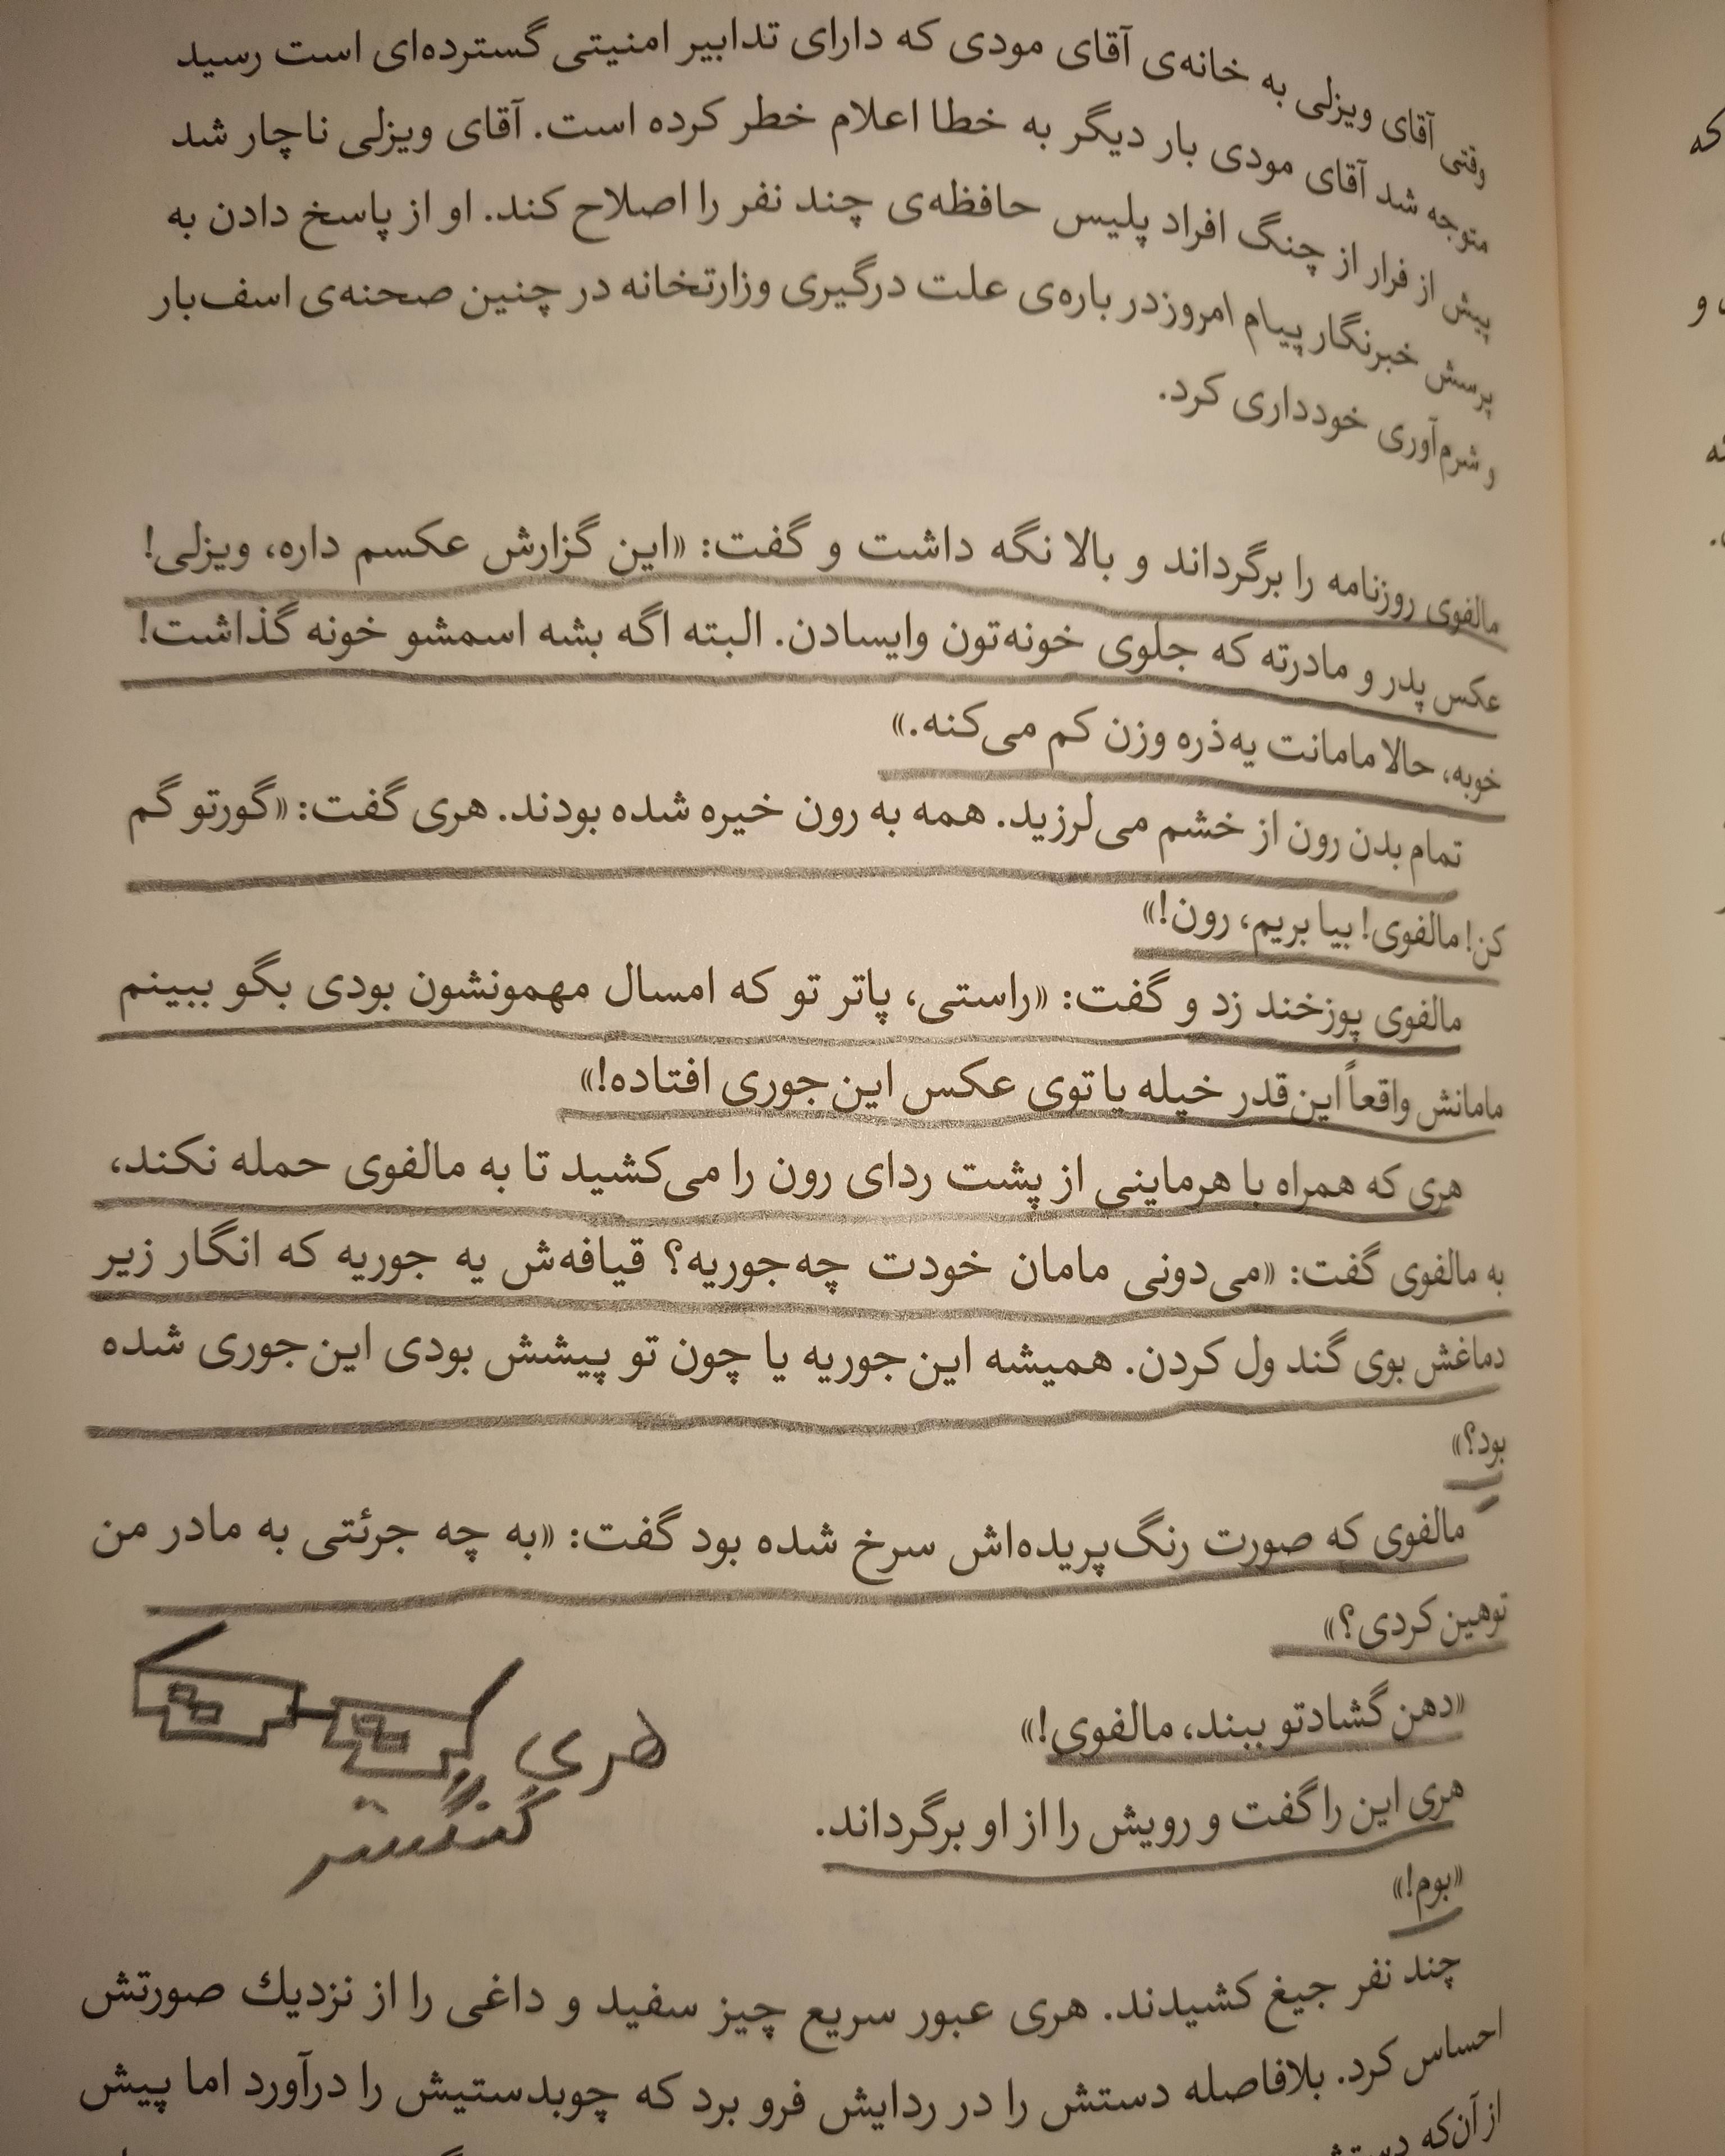 وقتی آقای ویزلی به خانه‌ی آقای مودی که دارای تدابیر امنیتی گسترده‌ای است رسید
متوجه شد آقای مودی بار دیگر به خطا اعلام خطر کرده است. آقای ویزلی ناچار شد
پیش از فرار از چنگ افراد پلیس حافظه‌ی چند نفر را اصلاح کند. او از پاسخ دادن به
پرسش خبرنگار پیام امروز در باره‌ی علت درگیری وزارتخانه در چنین صحنه‌ی اسف‌بار
و شرم‌آوری خودداری کرد.
مالفوی روزنامه را برگرداند و بالا نگه داشت و گفت: «این گزارش عکسم داره، ویزلی!
عکس پدر و مادرته که جلوی خونه‌تون وایسادن. البته اگه بشه اسمشو خونه گذاشت!
خوبه، حالا مامانت یه‌ذره وزن کم می‌کنه.»
تمام بدن رون از خشم می‌لرزید. همه به رون خیره شده بودند. هری گفت: «گورتو گم
کن! مالفوی! بیا بریم، رون!»
مالفوی پوزخند زد و گفت: «راستی، پاتر تو که امسال مهمونشون بودی بگو ببینم
مامانش واقعاً این‌قدر خپله یا توی عکس این‌جوری افتاده!»
هری که همراه با هرماینی از پشت ردای رون را می‌کشید تا به مالفوی حمله نکند،
به مالفوی گفت: «می‌دونی مامان خودت چه‌جوریه؟ قیافه‌ش یه جوریه که انگار زیر
دماغش بوی گند ول کردن. همیشه این‌جوریه یا چون تو پیشش بودی این‌جوری شده
بود؟»
مالفوی که صورت رنگ‌پریده‌اش سرخ شده بود گفت: «به چه جرئتی به مادر من
توهین کردی؟»
«دهن گشادتو ببند، مالفوی!»
هری
گنگستر
هری این را گفت و رویش را از او برگرداند.
«بوم!»
چند نفر جیغ کشیدند. هری عبور سریع چیز سفید و داغی را از نزدیك صورتش
احساس کرد. بلافاصله دستش را در ردایش فرو برد که چوبدستیش را درآورد اما پیش
از آن‌که